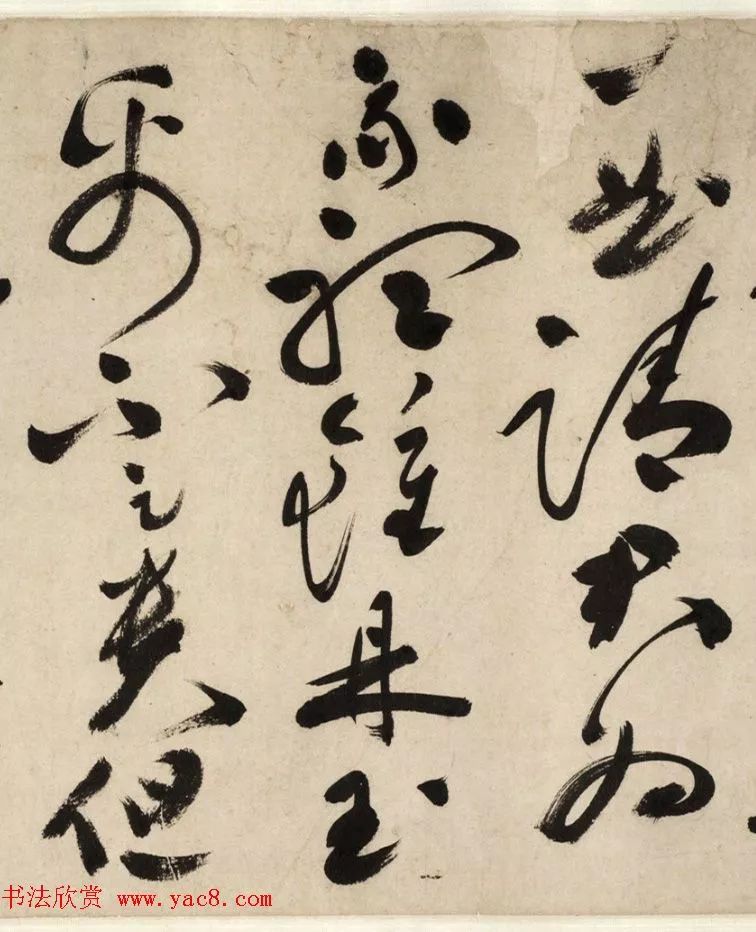 一曲請君為
我聽鐘鼎玉
帛不足貴但
书法欣赏 www.yac8.com